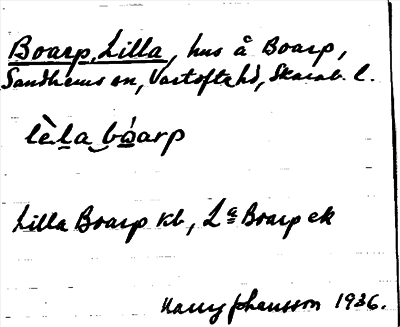 Boarp, Lilla, hus å Boarp,
Sandhems sn, Vartofta hd, Skarab. l.
lèla bóarp
Lilla Boarp kb, La Boarp ek
Harry Jhansson 1936.